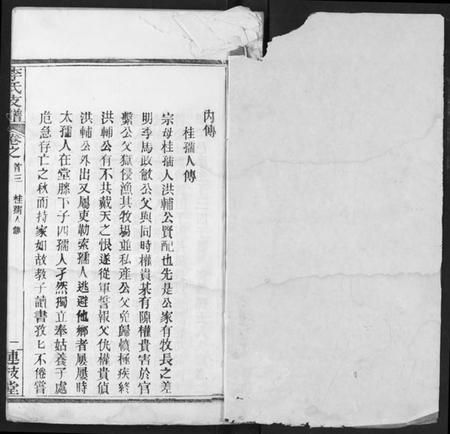 內傳
桂孺人傳
宗母桂孺人洪輔公賢配也先是公家有牧長之差
明季馬政敝公父與同時權貴某有隙權貴害於官
繫公父獄侵漁其牧場並私產公父免歸憤極疾終
洪輔公有不共戴天之恨遂從軍誓報父仇權貴偵
洪輔公外出又屬吏勒索孺人逃避他鄉者屢屢時
太孺人在堂膝下子四孺人孑然獨立奉姑養子處
危急存亡之秋而持家如故教子讀書孜匕不倦嘗
李氏支譜
卷之首三
桂孺人傳
一
連枝堂